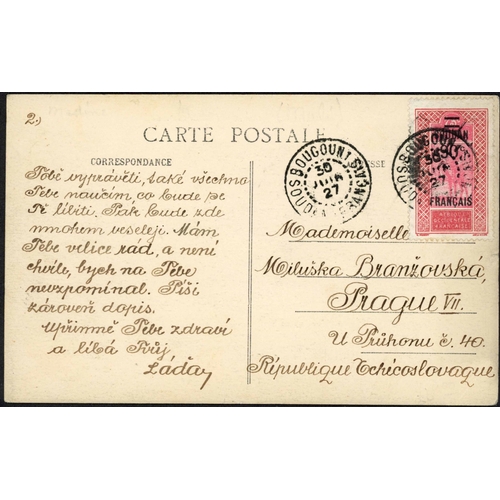 2.)
CARTE POSTALE
CORRESPONDANCE
Tobě vyprávěti, také všechno
Tebe naučím, co bude se
Ti líbiti. Pak bude zde
mnohem veseleji. Mám
Tebe velice rád, a není
chvíle, bych na Tebe
nevzpomínal. Píši
zároveň dopis.
Upřímně Tebe zdraví
a líbá Tvůj
Láďa
BOUGOUNI
30
JUIN
27
SOUDAN FRANÇAIS
SOUDAN
90
FRANÇAIS
AFRIQUE
OCCIDENTALE
FRANÇAISE
Mademoiselle
Miluška Branžovská,
Prague VII.
U Průhonu č. 40.
République Tchécoslovaque